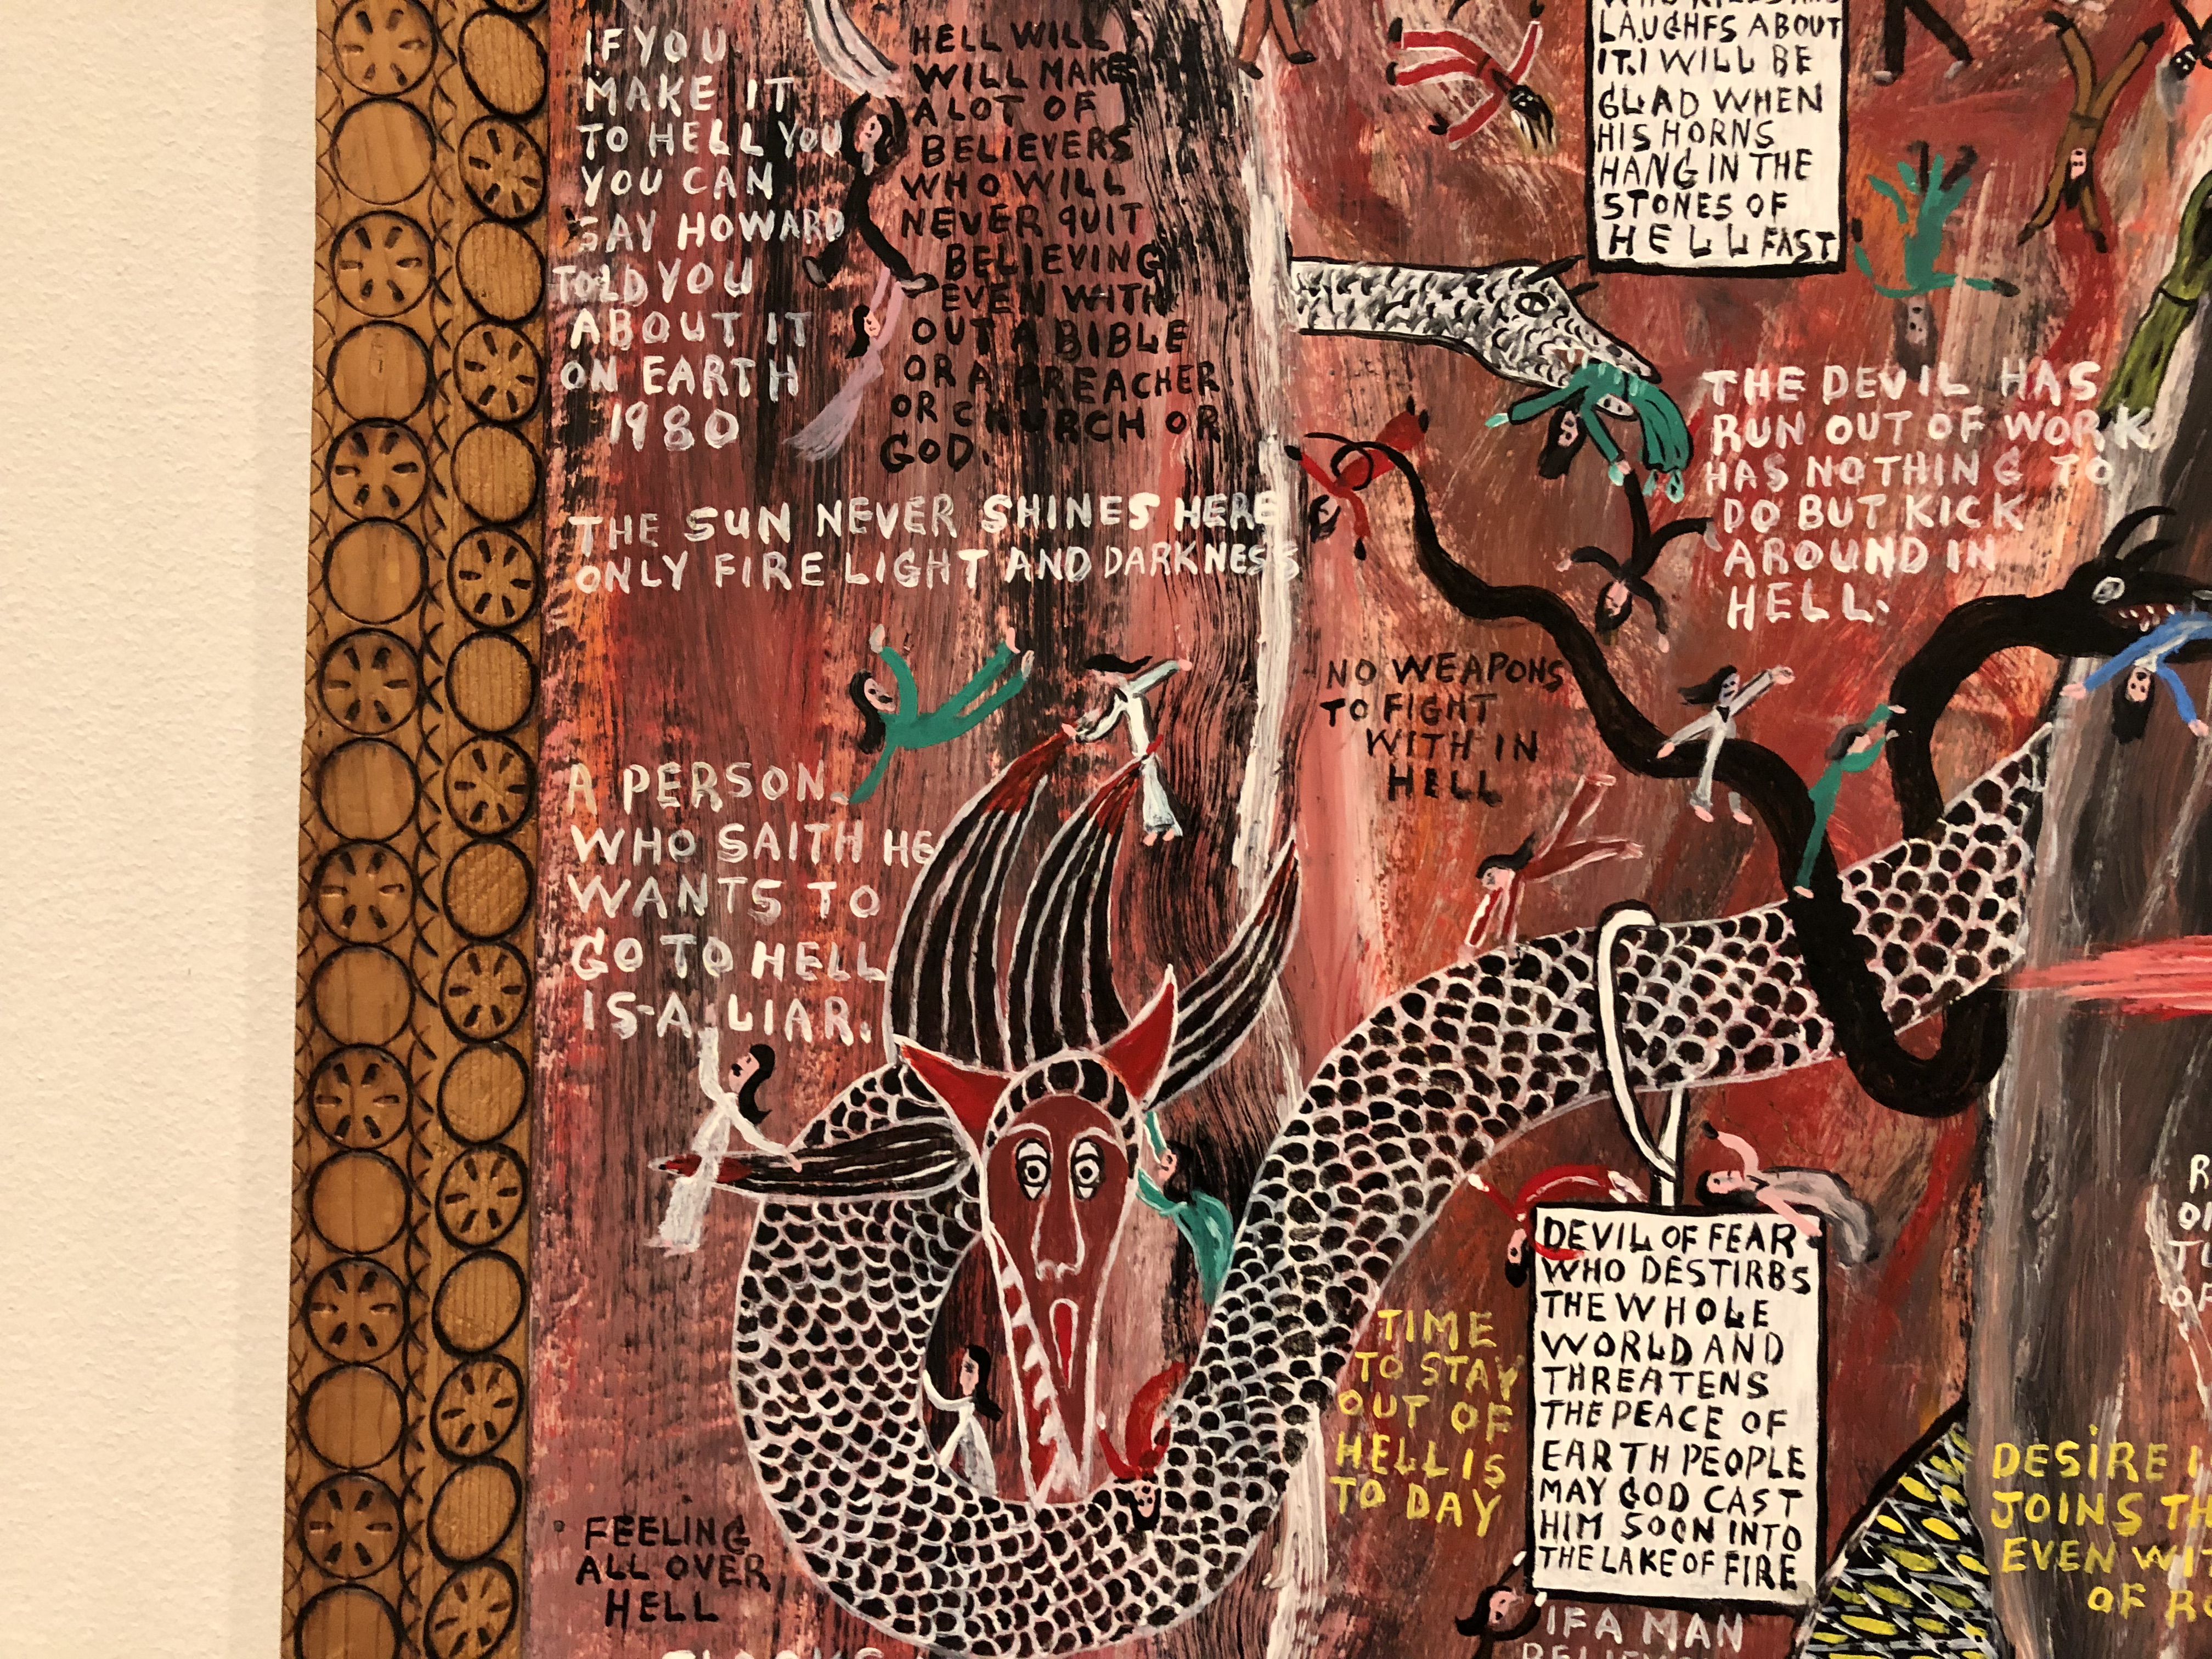 IF YOU
MAKE IT
TO HELL YOU
YOU CAN
SAY HOWARD
TOLD YOU
ABOUT IT
ON EARTH
1980
HELL WILL
WILL MAKE
A LOT OF
BELIEVERS
WHO WILL
NEVER QUIT
BELIEVING
EVEN WITH
OUT A BIBLE
OR A PREACHER
OR CHURCH OR
GOD.
LAUGHFS ABOUT
IT. I WILL BE
GLAD WHEN
HIS HORNS
HANG IN THE
STONES OF
HELL FAST
THE DEVIL HAS
RUN OUT OF WORK
HAS NOTHING TO
DO BUT KICK
AROUND IN
HELL.
THE SUN NEVER SHINES HERE
ONLY FIRE LIGHT AND DARKNESS
NO WEAPONS
TO FIGHT
WITH IN
HELL
A PERSON
WHO SAITH HE
WANTS TO
GO TO HELL
IS-A. LIAR.
DEVIL OF FEAR
WHO DESTIRBS
THE WHOLE
WORLD AND
THREATENS
THE PEACE OF
EARTH PEOPLE
MAY GOD CAST
HIM SOON INTO
THE LAKE OF FIRE
TIME
TO STAY
OUT OF
HELL IS
TO DAY
DESIRE
JOINS
EVEN
OF
FEELING
ALL OVER
HELL
IF A MAN